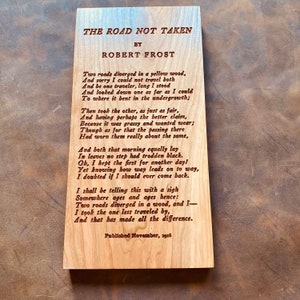 THE ROAD NOT TAKEN
BY
ROBERT FROST
Two roads diverged in a yellow wood,
And sorry I could not travel both
And be one traveler, long I stood
And looked down one as far as I could
To where it bent in the undergrowth;
Then took the other, as just as fair,
And having perhaps the better claim,
Because it was grassy and wanted wear;
Though as for that the passing there
Had worn them really about the same,
And both that morning equally lay
In leaves no step had trodden black.
Oh, I kept the first for another day!
Yet knowing how way leads on to way,
I doubted if I should ever come back.
I shall be telling this with a sigh
Somewhere ages and ages hence:
Two roads diverged in a wood, and I—
I took the one less traveled by,
And that has made all the difference.
Published November, 1916